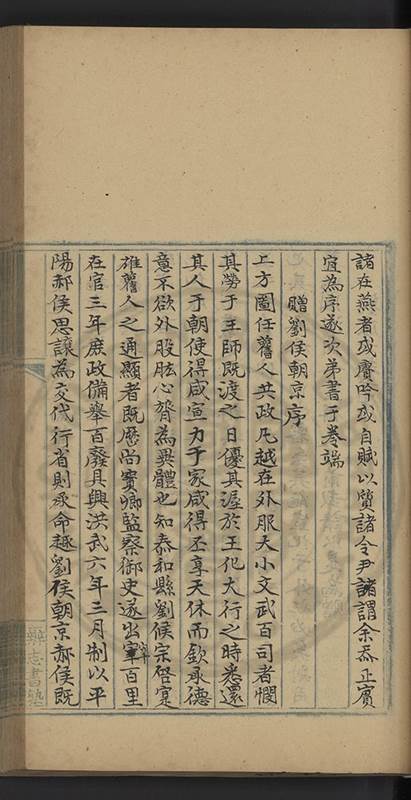 諸在燕者或賡吟或自賦以質諸令尹諸謂余忝正賓
宜為序遂次弟書于卷端
贈劉侯朝京序
上方圖任舊人共政凡越在外服大小文武百司者憫
其勞于王師既渡之日優其渥於王化大行之時悉還
其人于朝使得咸宣力于家咸得丕享天休而欽承德
意不欲外股肱心膂為異體也知泰和縣劉侯宗啓寔
雄舊人之通顯者既歷尚寳卿監察御史遂出宰百里
在官三年庶政備舉百廢具興洪武六年三月制以平
陽郝侯思讓為交代行省則承命趣劉侯朝京郝侯既
志書塾